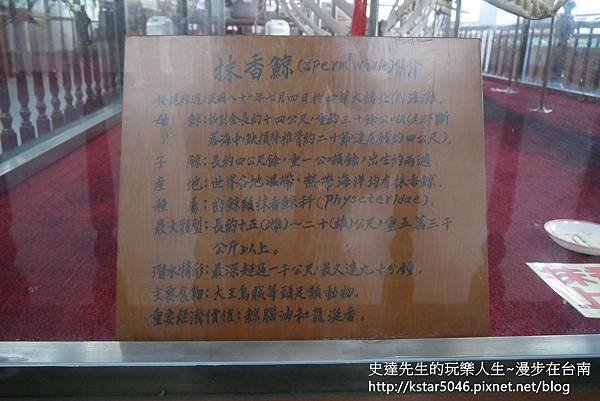 抹香鯨(sperm whale)簡介
發現經過:民國八十一年七月四日於中華大橋北側海灘。
母 鯨:估計全長約十四公尺,重約三十餘公噸(尾部斷
落海中,缺損脊椎骨約二十節連尾鰭約四公尺)。
子 鯨:長約四公尺餘,重一公噸餘,出生約兩週
産 地:世界各地溫帶、熱帶海洋均有抹香鯨。
種 屬:齒鯨類抹香鯨科(Physeteridae)。
最大體型:長約十五(雌)~二十(雄)公尺,重五萬三千
公斤以上。
潛水情形:最深超過一千公尺,最久達九十分鐘。
主要食物:大王烏賊等頭足類動物。
重要經濟價值:鯨腦油和龍涎香。
史達先生的玩樂人生~漫步在台南
http://kstar5046.pixnet.net/blog